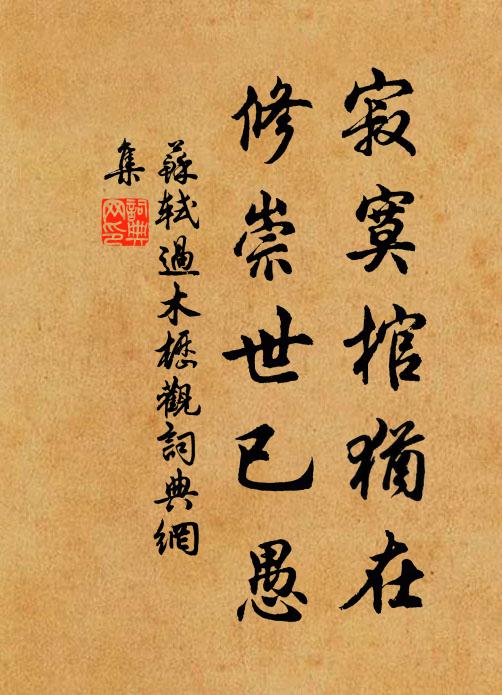 寂寞棺猶在
修崇世已愚
蘇軾過木櫪觀詞典網
集
詞典
网印